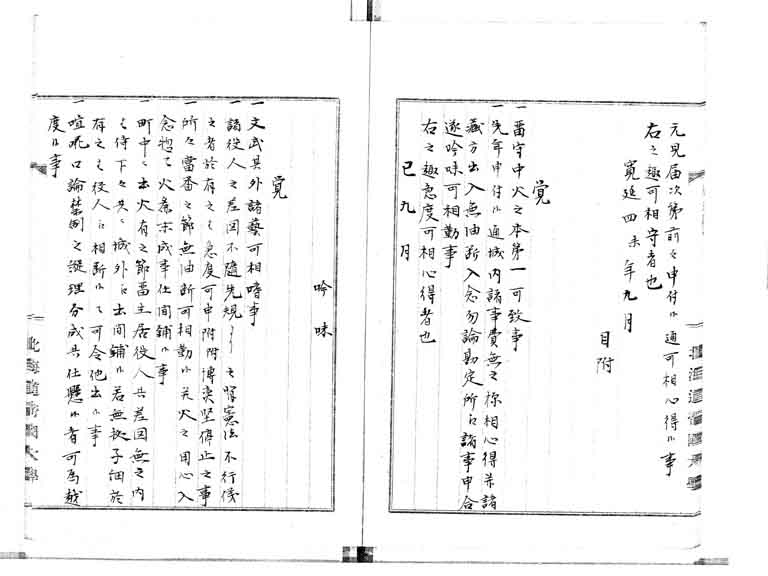 元見届次第前々申付候通可相心得候事
右之趣可相守者也
寛延四未年九月
目附
覚
一 留守中火之本第一可致事
一 先年申付候通城内諸事費無之様相心得并諸
蔵方出入無油断入念勿論勘定所江諸事申合
遂吟味可相勤事
右之趣急度可相心得者也
巳九月
吟味
覚
一 文武其外諸藝可相嗜事
一 諸役人之差図不随先規
憲法不行儀
之者於有之ハ急度可申附附博奕堅停止之事
一 所々當番之節無油断可相勤候并火之用心入
念惣而火急成事仕間鋪候事
一 町中ニ出火有之節留主居役人共差図無之内
ハ侍下々共ニ城外江出間鋪候若無拠子細於
有之ハ役人江相断候而可令他出候事
一 喧硴口論禁制之縦理分成共仕懸候者可為越
度候事
北海道帝国大學